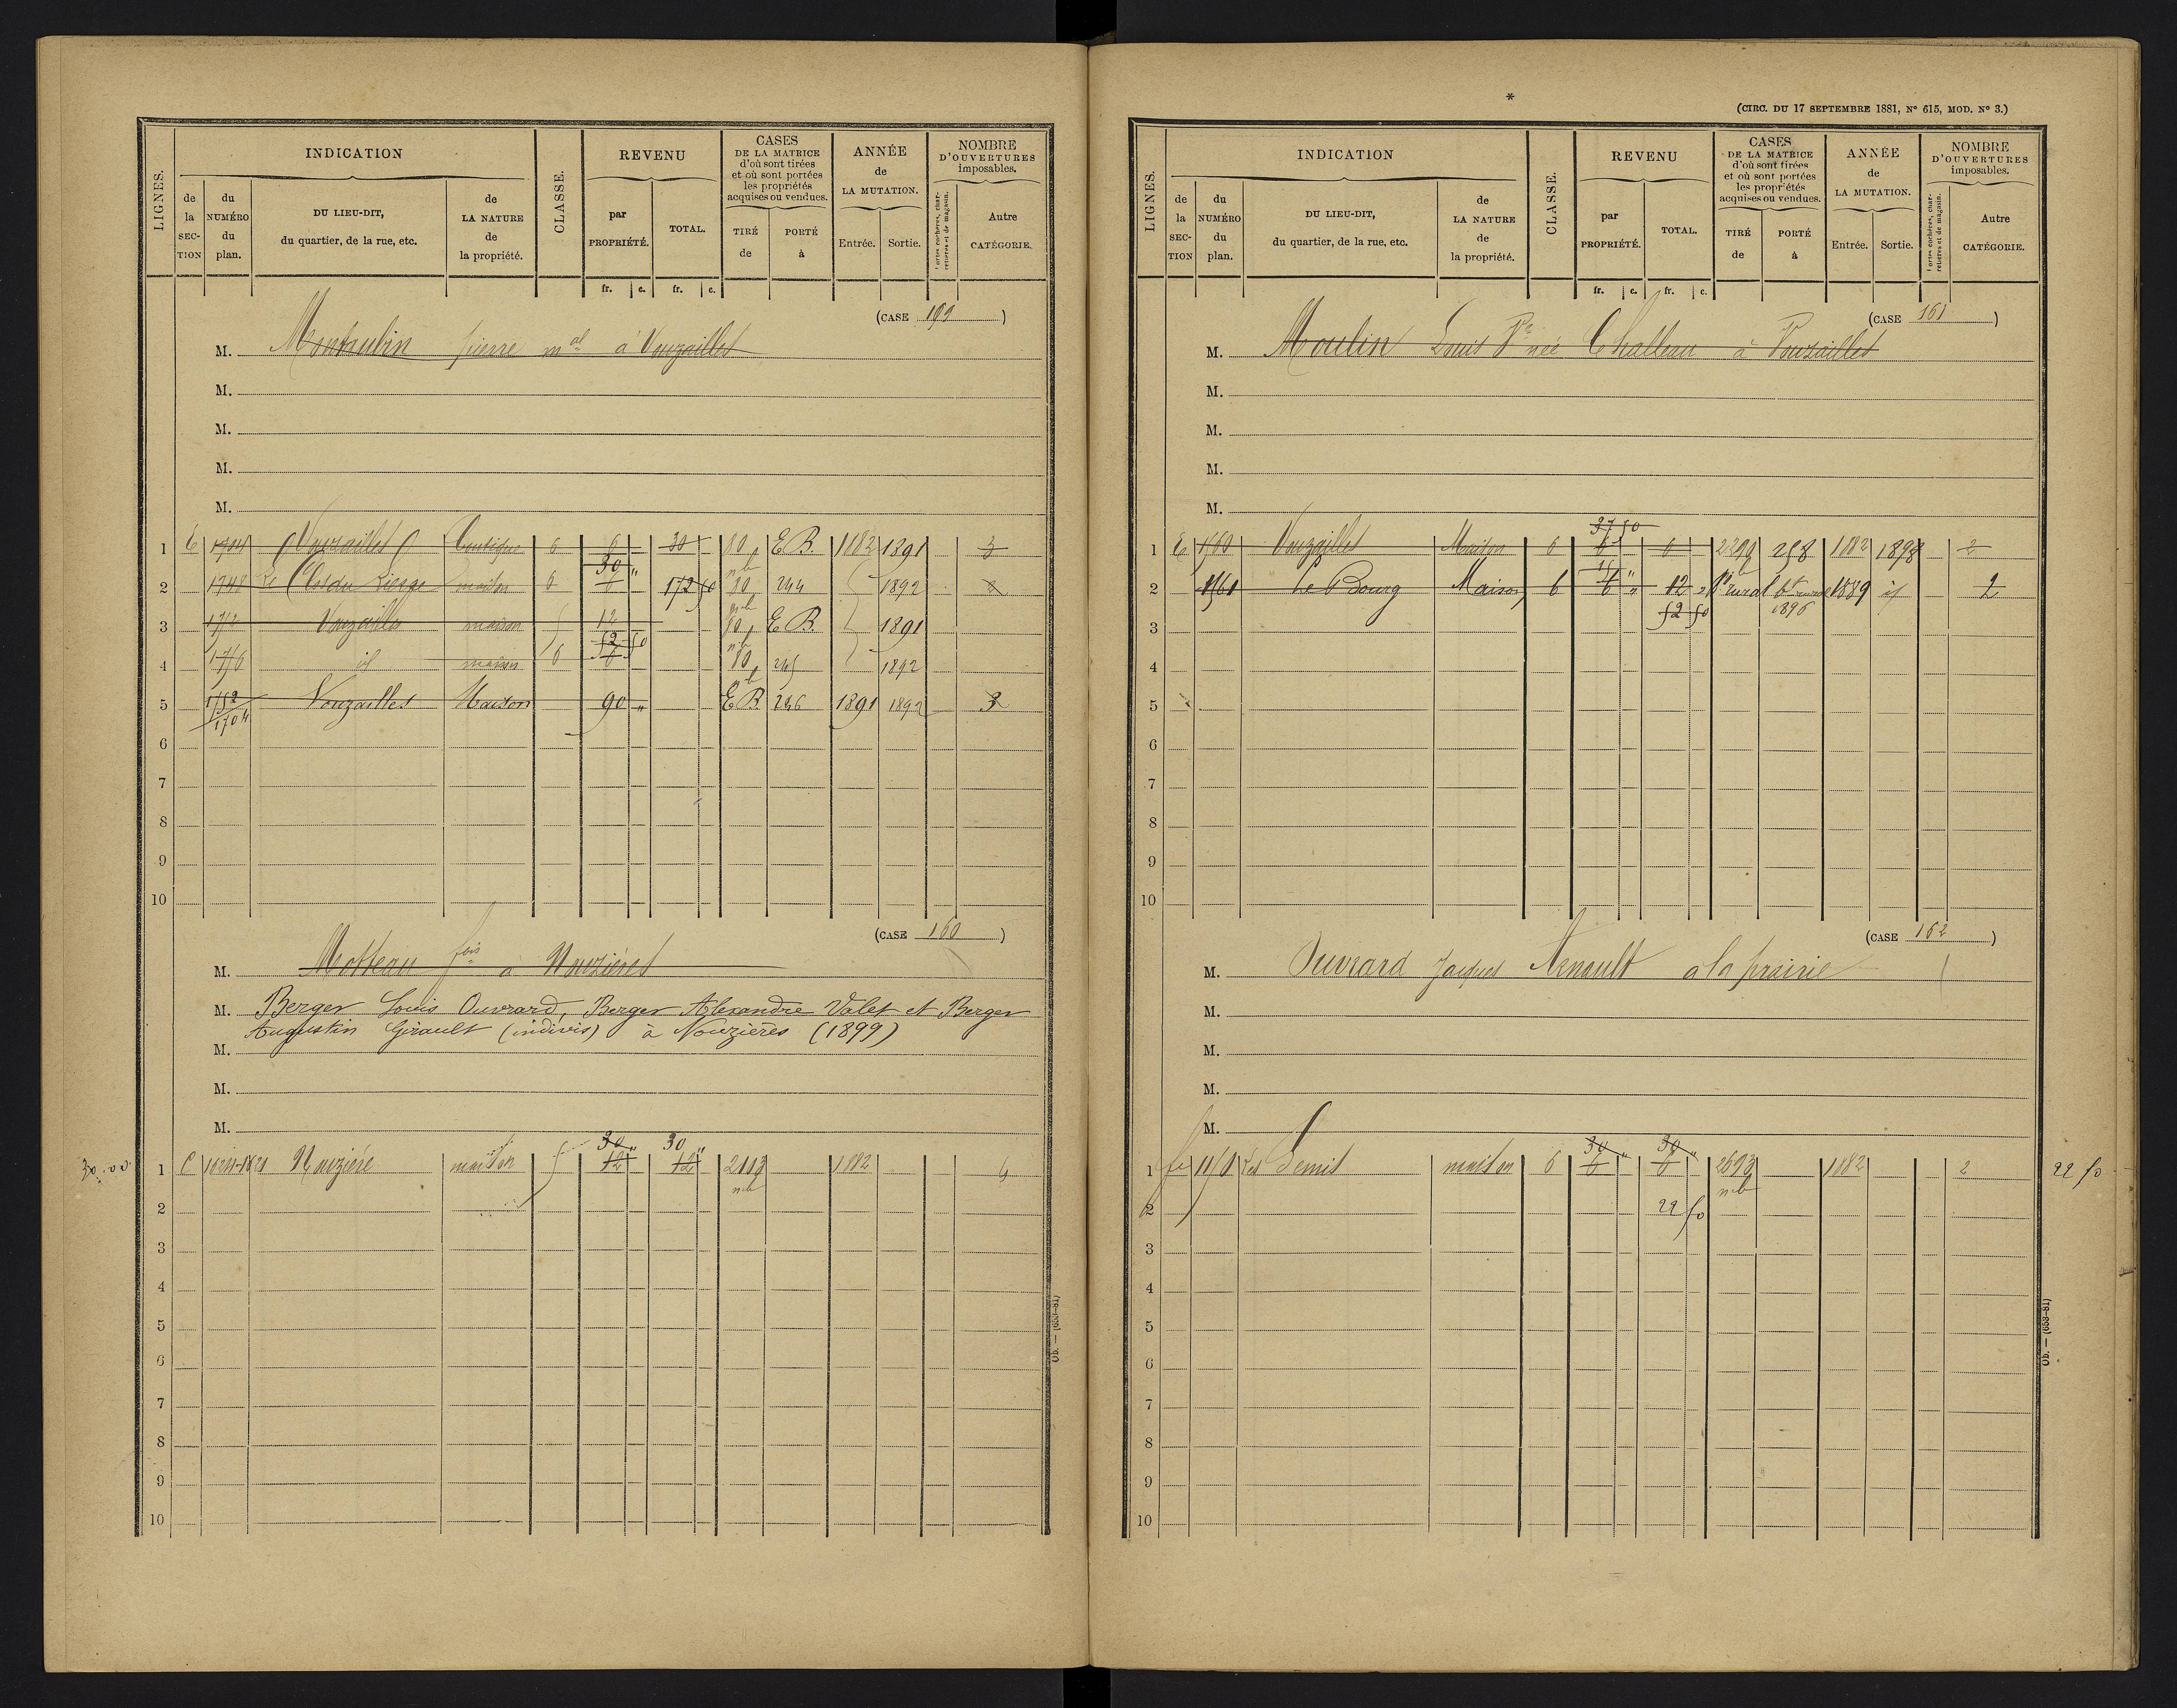 INDICATION
REVENU
CASES
DE LA MATRICE
d'où sont tirées
et où sont portées
les propriétés
acquises ou vendues.
ANNÉE
de
LA MUTATION.
NOMBRE
D'OUVERTURES
imposables.
LIGNES.
de
la
SEC-
TION
du
NUMÉRO
du
plan.
DU LIEU-DIT,
du quartier, de la rue, etc.
de
LA NATURE
de
la propriété.
CLASSE.
par
PROPRIÉTÉ.
TOTAL.
TIRÉ
de
PORTÉ
à
Entrée.
Sortie.
Portes cochères, char-
retières et de magasin.
Autre
CATÉGORIE.
fr. c. fr. c.
(CASE )
M. pierre à Vouzailles
M.
M.
M.
M.
1 Vouzailles Boutique 6 6 30 80 E B. 1882 1891 3
30 "
2 1748 maison 6 6 172 50 80 244 1892
3 Vouzailles maison 12 80 E B. 1891
52 50
4 1756 id maison 6 6 80 245 1892
5 1752 Vouzailles Maison 90 " E B. 246 1891 1892 3
1704
6
7
8
9
10
(CASE 160 )
M. Motteau fois à Nouzières
M. Berger Louis Ouvrard, Berger Alexandre Valet et Berger
Augustin Girault (indivis) à Nouzières (1899)
M.
M.
M.
30 " 30 "
30.00 1 C maison 12 12 1882 4
2
3
4
5
6
7
8
9
10
Ob. — (653-81)
*
(CIRC. DU 17 SEPTEMBRE 1881, Nº 615, MOD. Nº 3.)
INDICATION
REVENU
CASES
DE LA MATRICE
d'où sont tirées
et où sont portées
les propriétés
acquises ou vendues.
ANNÉE
de
LA MUTATION.
NOMBRE
D'OUVERTURES
imposables.
LIGNES.
de
la
SEC-
TION
du
NUMÉRO
du
plan.
DU LIEU-DIT,
du quartier, de la rue, etc.
de
LA NATURE
de
la propriété.
CLASSE.
par
PROPRIÉTÉ.
TOTAL.
TIRÉ
de
PORTÉ
à
Entrée.
Sortie.
Portes cochères, char-
retières et de magasin.
Autre
CATÉGORIE.
fr. c. fr. c.
(CASE 161 )
M. Moulin Louis Vve née à Vouzailles
M.
M.
M.
M.
37 50
1 E 1560 Vouzailles Maison 6 6 6 2299 258 1882 1898 2
15 "
2 1561 Le Bourg Maison 6 6 " 12 " 1889 id 2
52 50 1896
3
4
5
6
7
8
9
10
(CASE 162 )
M. Ouvrard Jacques Arnault à la prairie
M.
M.
M.
M.
30 " 30 "
1 maison 6 6 6 2693 1882 2 22 50
2 22 50
3
4
5
6
7
8
9
10
Ob. — (653-81)